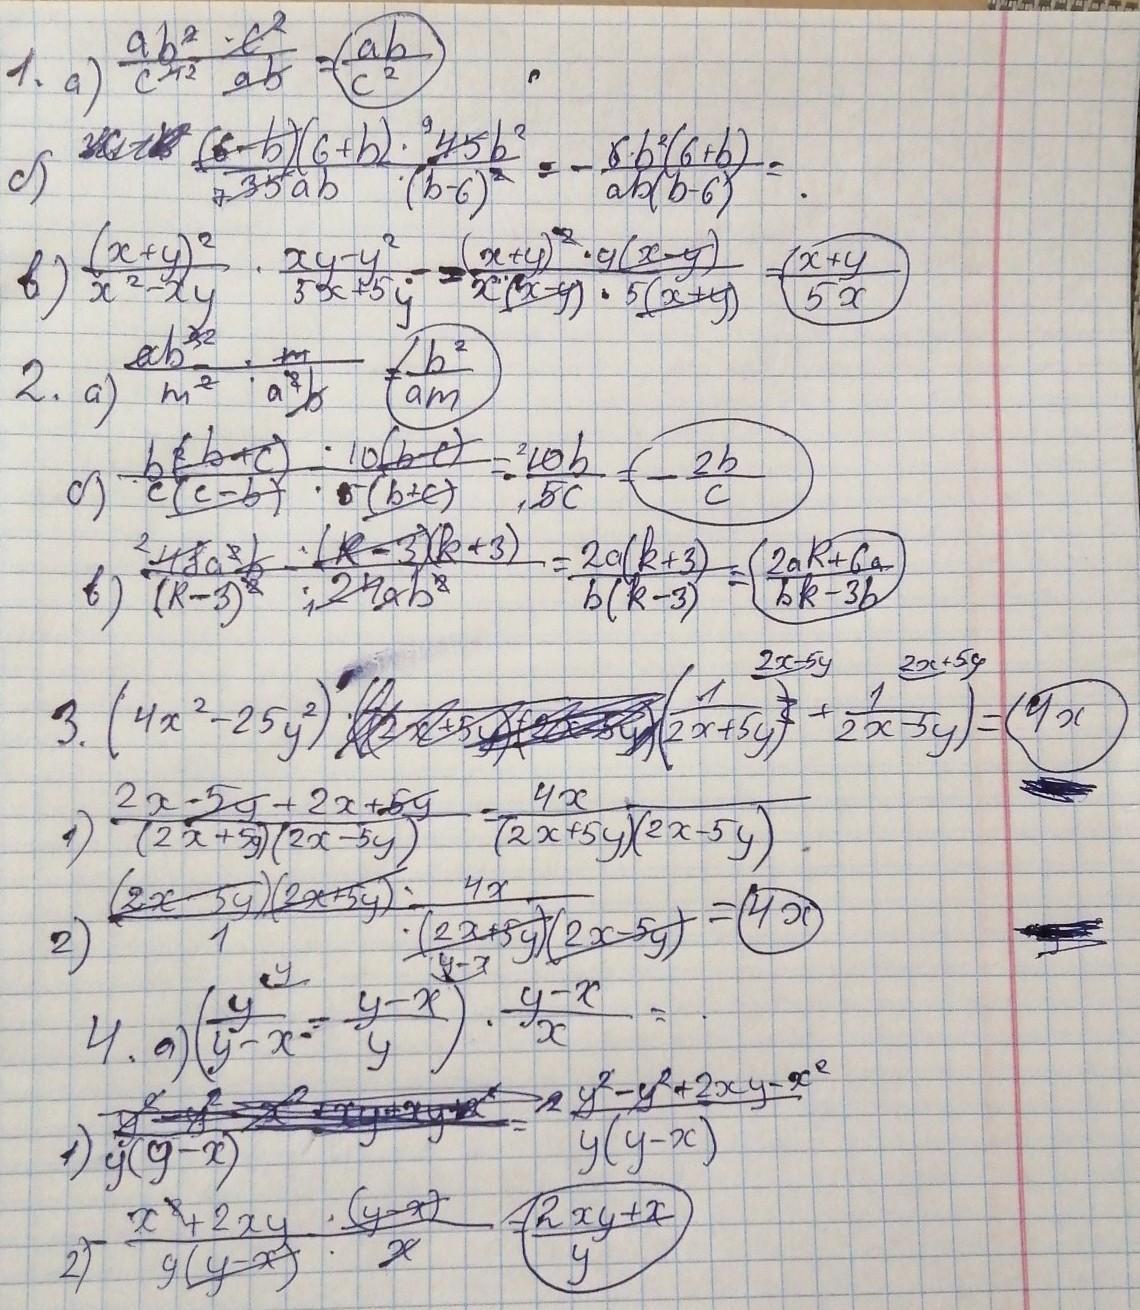 1. а) ab²/c⁴² · c²/ab = ab/c²
б) (6-b)(6+b) · ⁹45b² / ₇35ab · (b-6)² = - 6·b²(6+b)/ab(b-6) =
в) (x+y)²/x²-xy · xy-y²/5x+5y = (x+y)² · y(x-y)/x(x-y) · 5(x+y) = x+y/5x
2. а) ab³²/m² · m/a²b = b²/am
б) b(b+c) · 10(b-c)/c(c-b) · 5(b+c) = ²10b/₁5c = - 2b/c
в) a²b · (k-3)(k+3)/(k-3)² · ₁24ab² = 2a(k+3)/b(k-3) = 2ak+6a/bk-3b
2x-5y 2x+5y
3. (4x²-25y²) · (1/2x+5y + 1/2x-5y) = 4x
1) 2x-5y+2x+5y/(2x+5y)(2x-5y) = 4x/(2x+5y)(2x-5y)
2) (2x-5y)(2x+5y)/1 · 4x/(2x+5y)(2x-5y) = 4x
y y-x
4. а) (y/y-x - y-x/y) · y-x/x =
1) y(y-x) = y²-y²+2xy-x²/y(y-x)
2) - x²+2xy/y(y-x) · (y-x)/x = 2xy+x/y